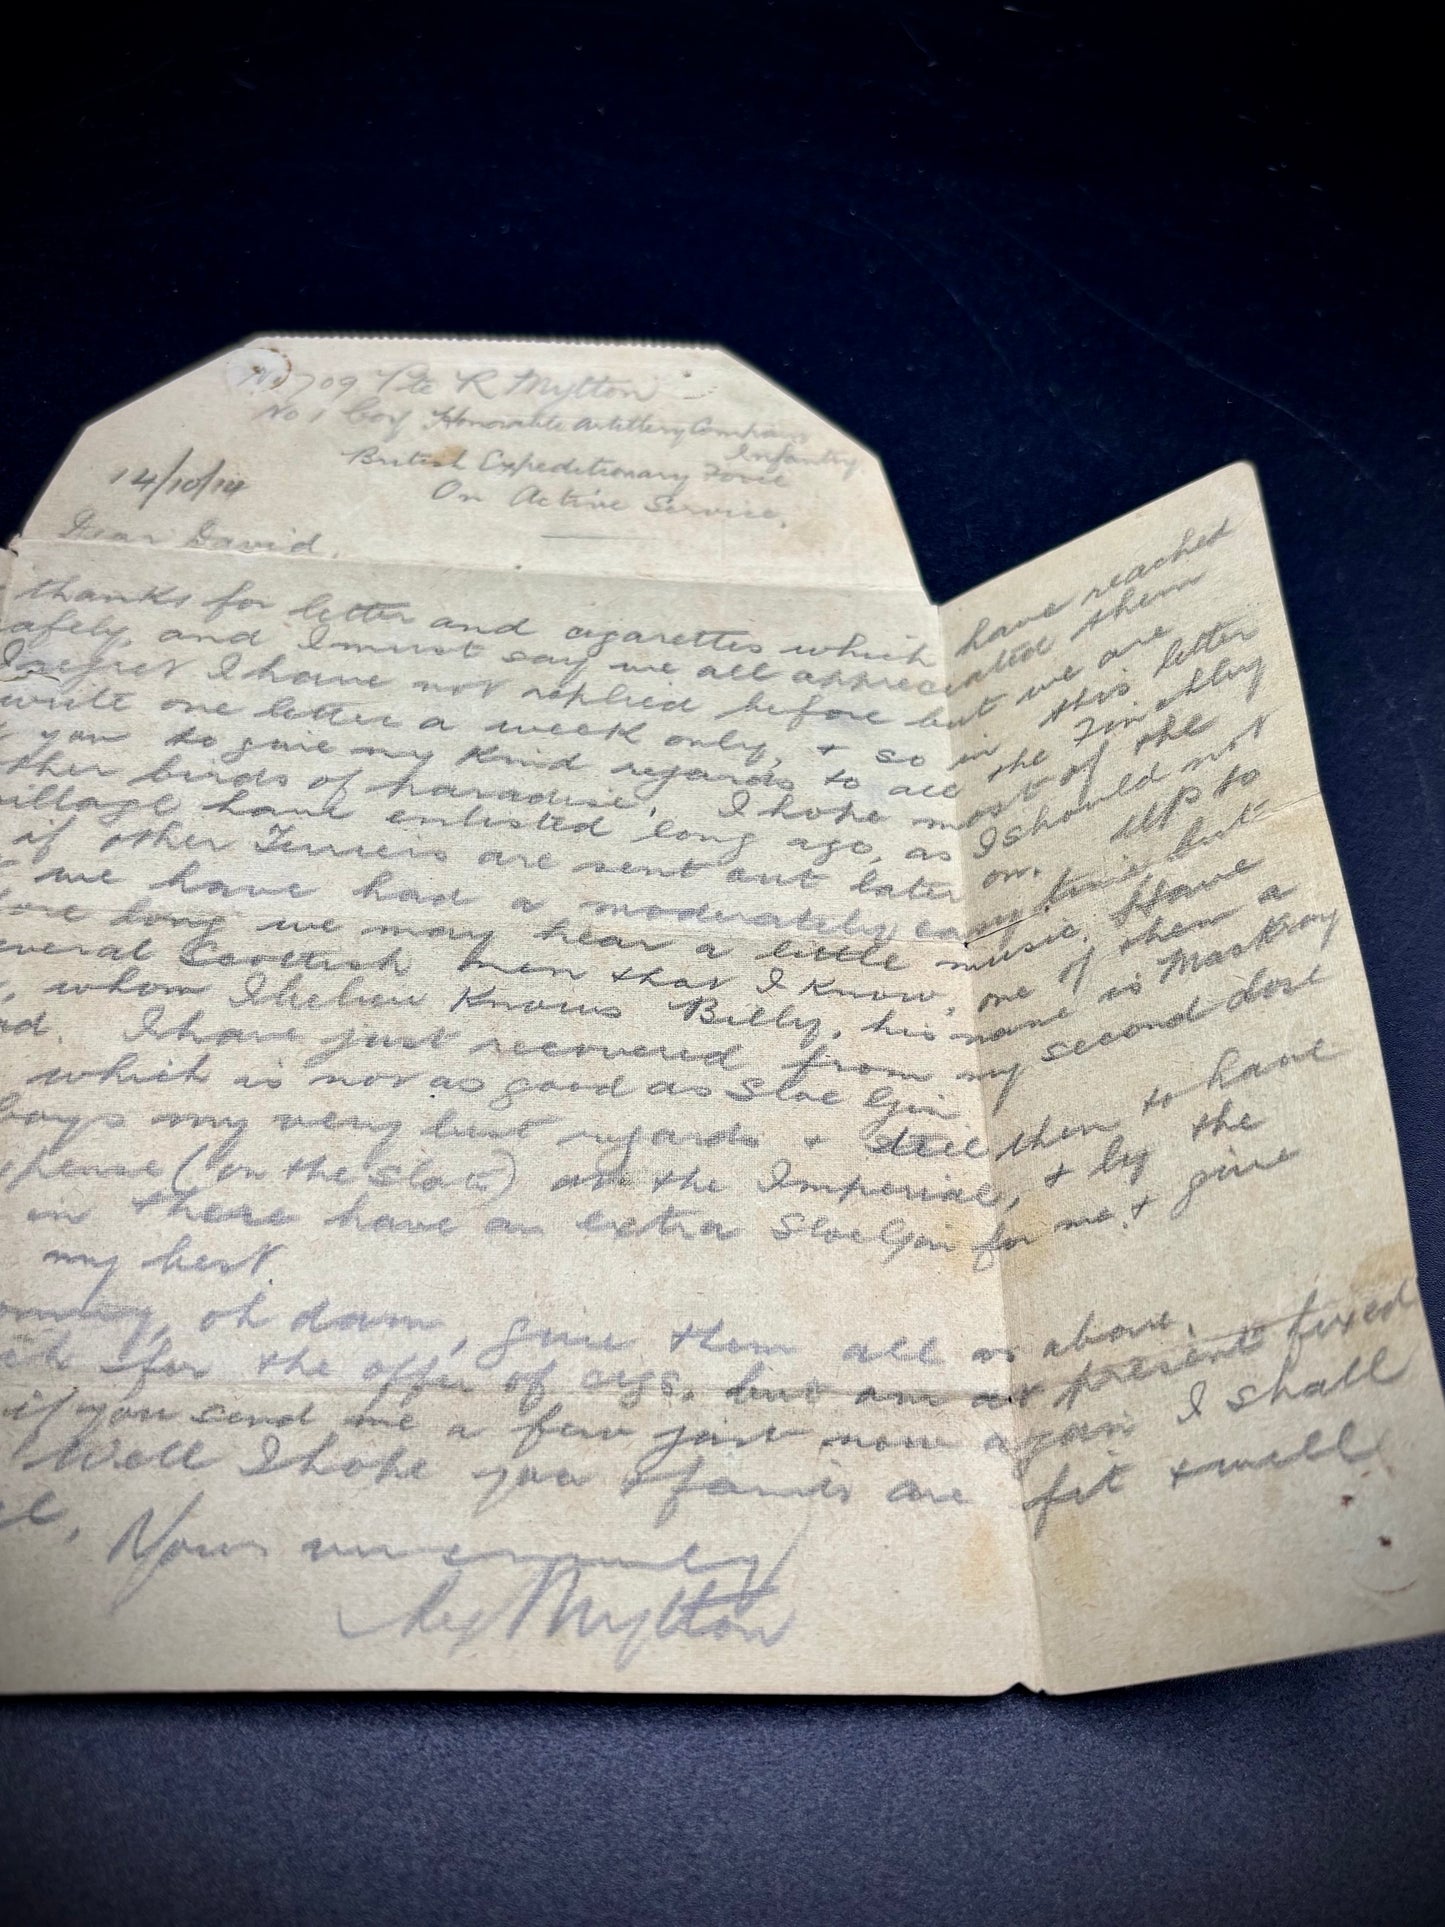 No 709 Pte R Mytton
No 1 Coy Honorable Artillery Company
Infantry.
British Expeditionary Force
On Active Service.
14/10/14
Dear David,
thanks for letter and cigarettes which have reached
safely, and I must say we all appreciated them
I regret I have not replied before but we are
write one letter a week only, & so in this letter
you to give my kind regards to all the Finchley
other birds of paradise. I hope most of the
village have enlisted long ago, as I should not
if other Terriers are sent out later on. Up to
we have had a moderately easy time but
long we may hear a little music. Have
several Scottish men that I know, one of them a
, whom I believe knows Billy, his name is MacKroy
I have just recovered from my second dose
which is not as good as Sloe Gin
boys my very best regards & tell them to have
expense (on the slate) at the Imperial, & by the
in there have an extra Sloe Gin for me & give
my best.
oh damn, give them all as above.
for the offer of cigs. but am at present fixed
if you send me a few just now again I shall
Well I hope you & family are fit & well
Yours very sincerely
Mytton